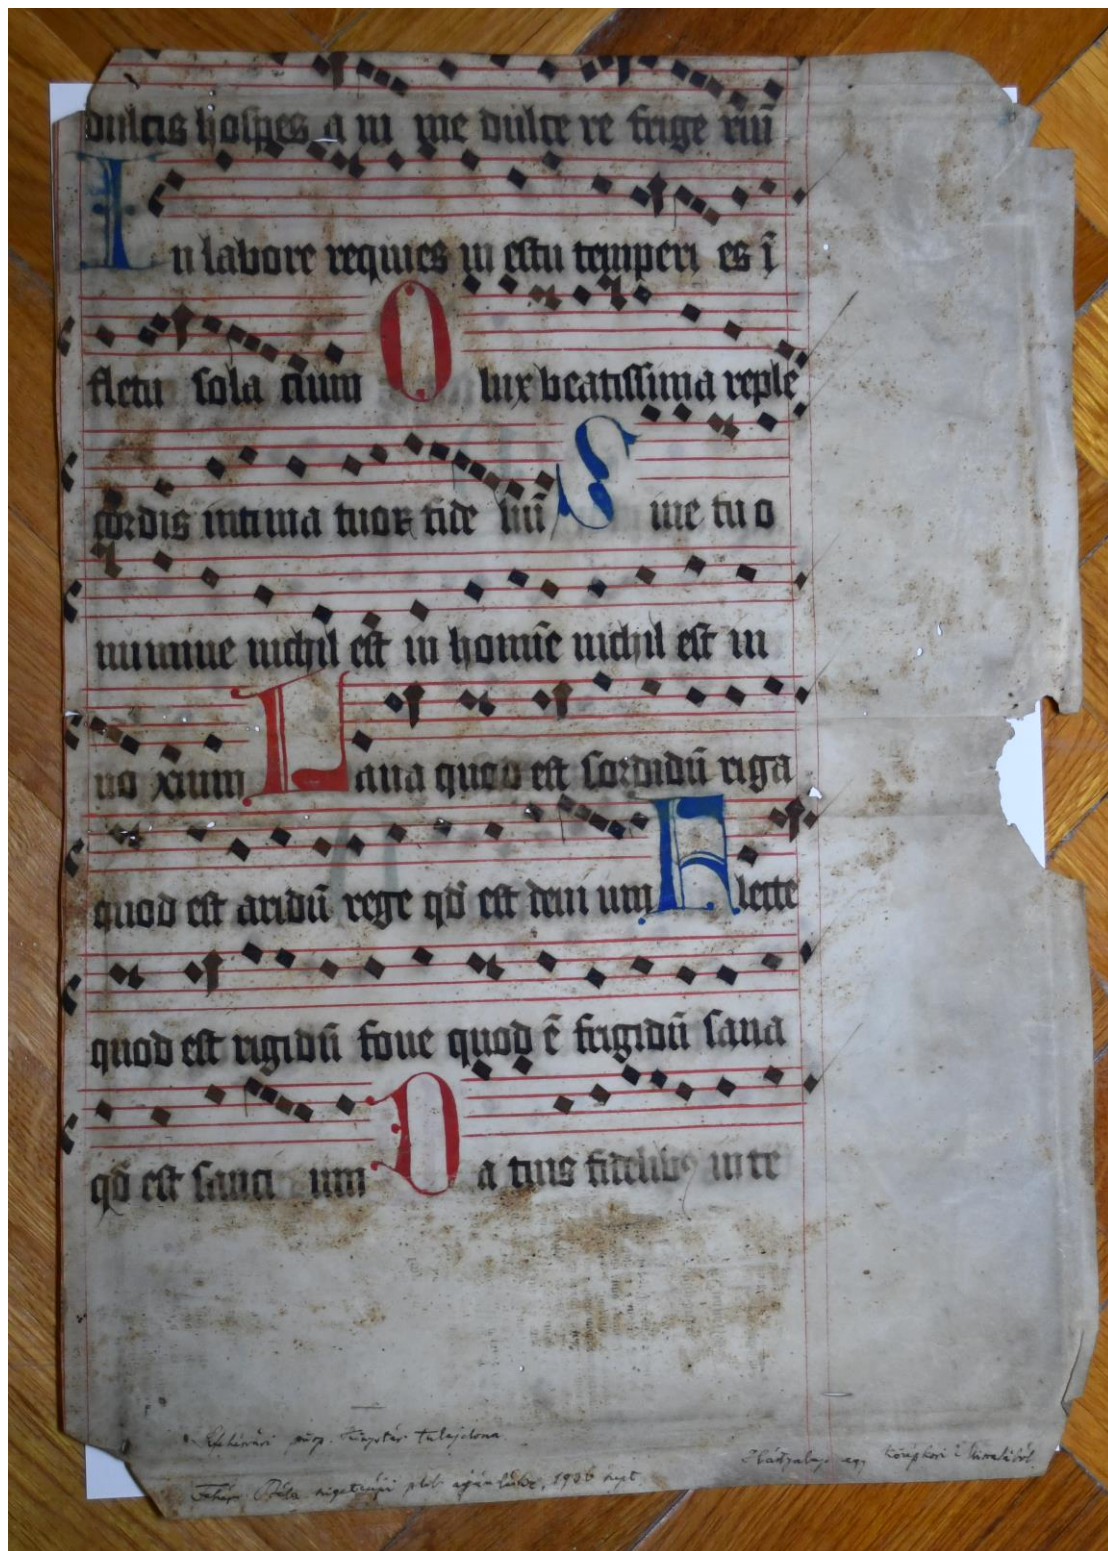 dulcis hospes a ni me dulce re frige riū
In labore requies in estu temperi es ī
fletu sola cium O lux beatissima reple
cordis intima tuoꝝ fide liū Sine tu o
numine nichil est in homīe nichil est in
no xium Laua quod est sordidū riga
quod est aridū rege qd̄ est deui um Flecte
quod est rigidū foue quod ē frigidū sana
qd̄ est sauci um Da tuis fidelibꝰ in te
Székesfehérvári püsp. Könyvtár tulajdona.
Háttyalap egy középkori
1936 sept.